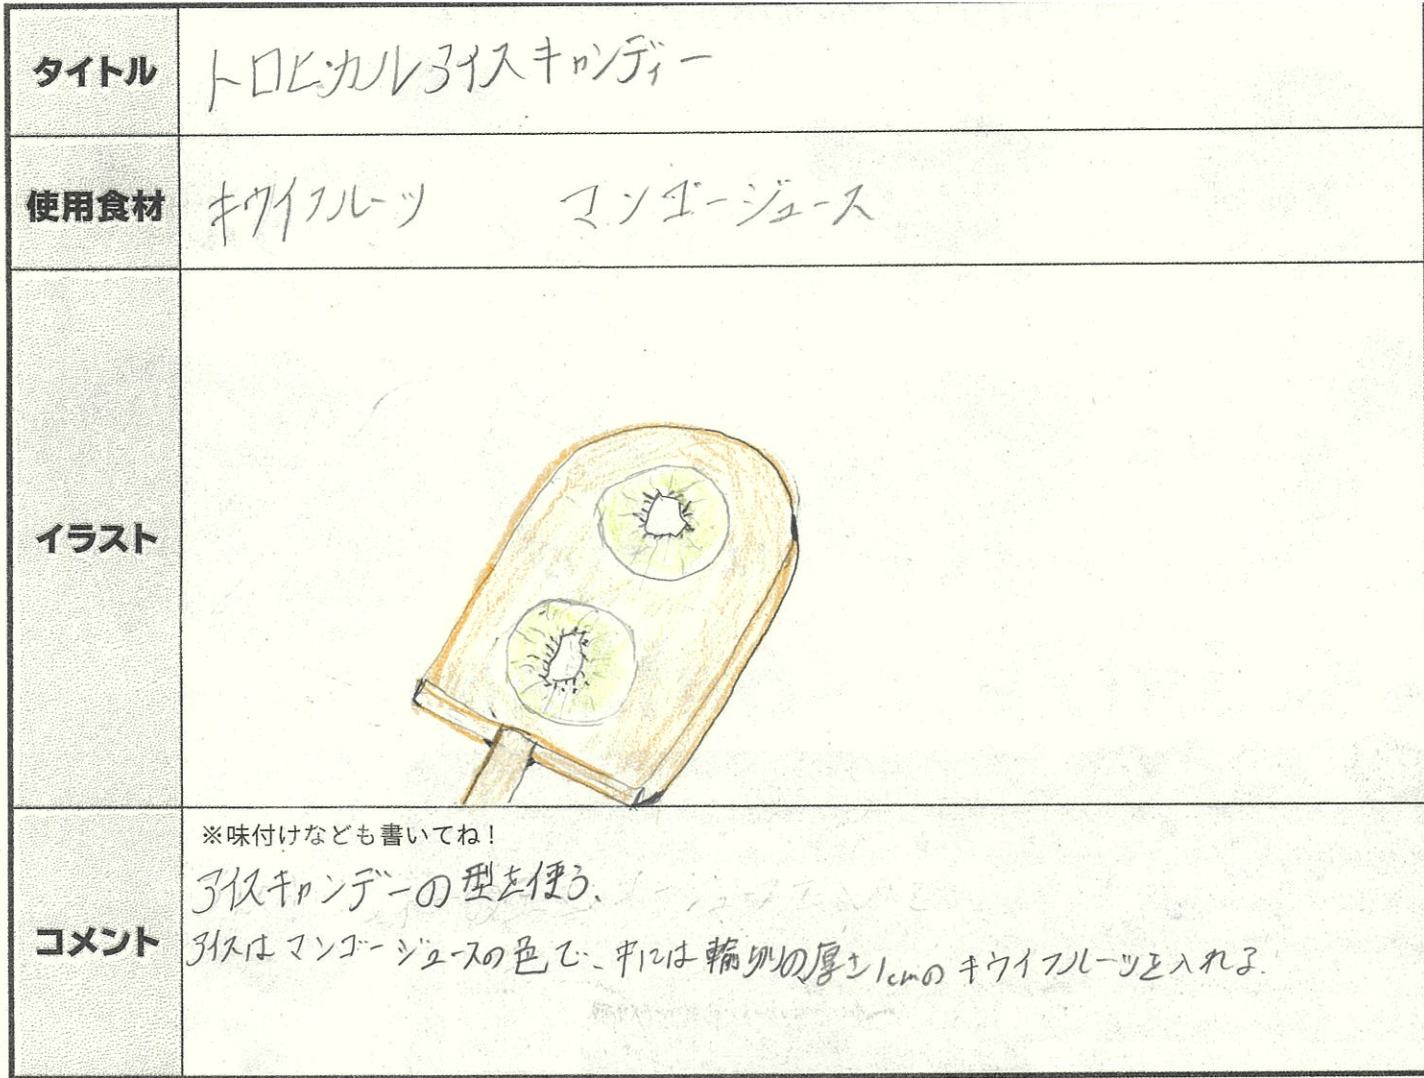 タイトル
トロピカルアイスキャンディー
使用食材
キウイフルーツ マンゴージュース
イラスト
コメント
※味付けなども書いてね！
アイスキャンデーの型を使う。
アイスはマンゴージュースの色で、中には輪切りの厚さ1cmのキウイフルーツを入れる。